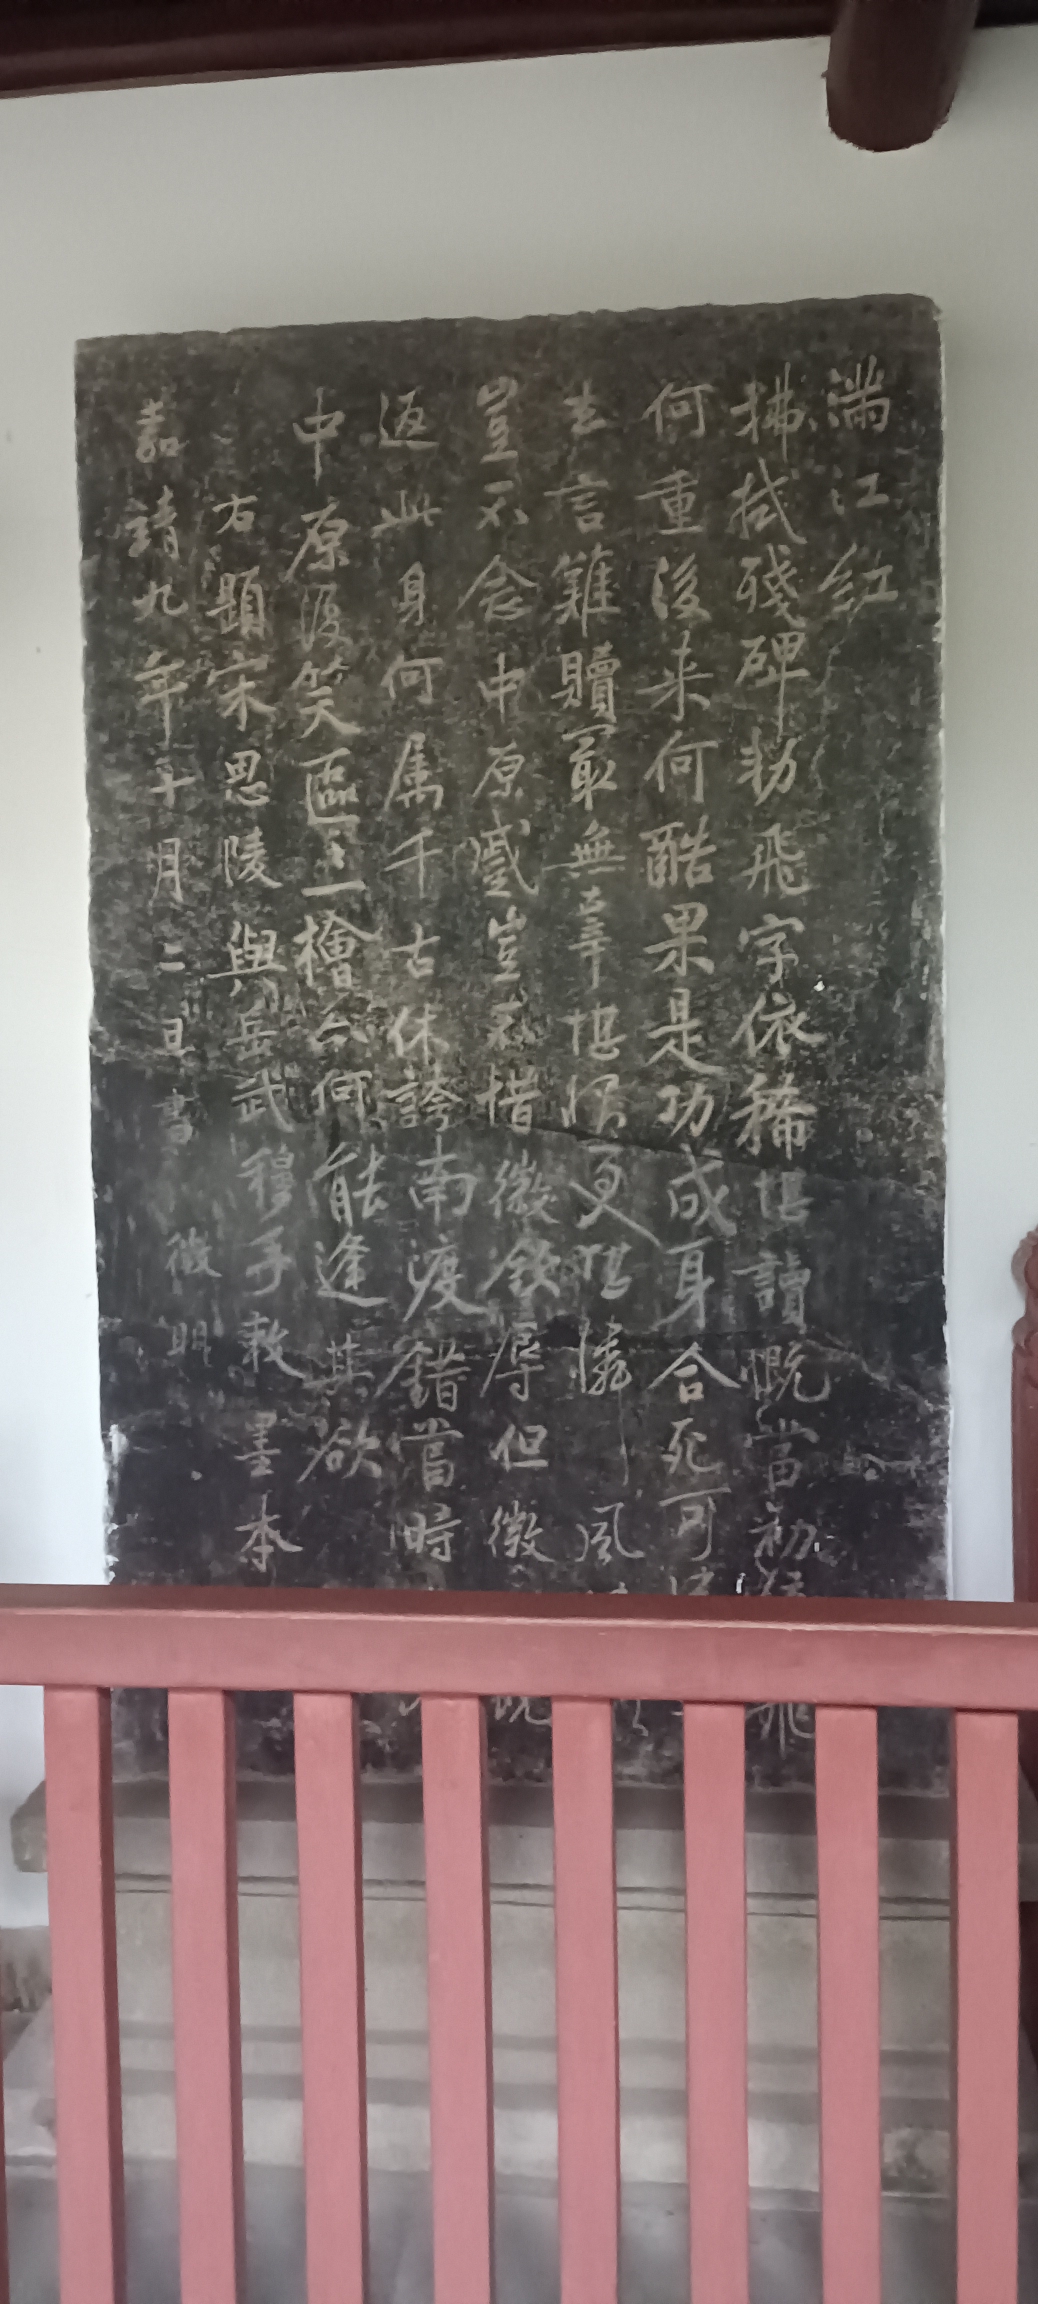 满江红
拂拭殘碑勑飛字依稀堪讀慨當初 飛
何重後来何酷果是功成身合死可
去言難贖最無辜堪恨更堪憐 風
豈不念中原蹙豈不惜徽欽辱但徽
返此身何属千古休誇南渡錯當時
中原復笑區區一檜亦何能逢其欲
右題宋思陵與岳武穆手敕墨本
嘉靖九年十月二日書 徵明